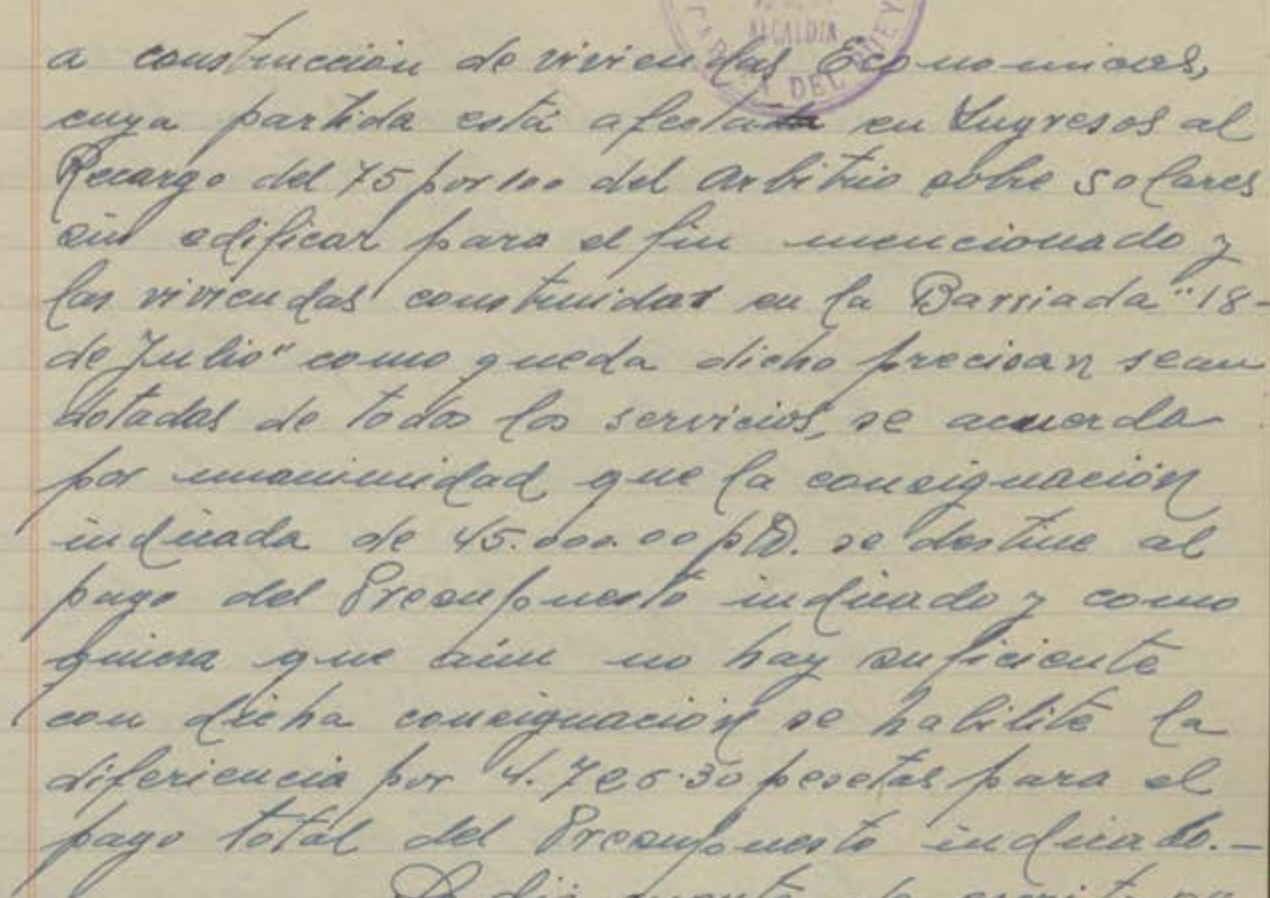 ALCALDIA
DEL
a construcción de viviendas Economicas,
cuya partida está afectada en Ingresos al
Recargo del 75 por 100 del Arbitrio sobre solares
sin edificar para el fin mencionado y
las viviendas construidas en la Barriada "18-
de Julio" como queda dicho precisan sean
dotadas de todos los servicios, se acuerda
por unanimidad que la consignación
indicada de 45.000.00 pts. se destine al
pago del Presupuesto indicado y como
quiera que aún no hay suficiente
con dicha consignación se habilite la
diferiencia por pesetas para el
pago total del Presupuesto indicado.-